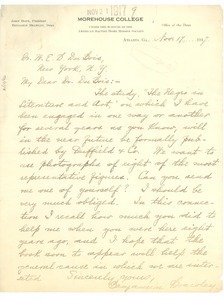 NOV 21 1917
MOREHOUSE COLLEGE
JOHN HOPE, PRESIDENT
BENJAMIN BRAWLEY, DEAN
Office of the Dean
ATLANTA, GA., Nov. 19, 1917
Dr. W. E. B. DuBois,
New York, N. Y.
My Dear Dr. DuBois:-
The study, "The Negro in
Literature and Art," on which I have
been engaged in one way or another
for several years as you know, will
in the near future be formally pub-
lished by Duffield & Co. We want to
use photographs of eight of the most
representative figures. Can you send
me one of yourself? I should be
very much obliged. In this connec-
tion I recall how much you did to
help me when you were here eight
years ago, and I hope that the
book soon to appear will help the
general cause in which we are inter-
ested. Sincerely yours,
Benjamin Brawley